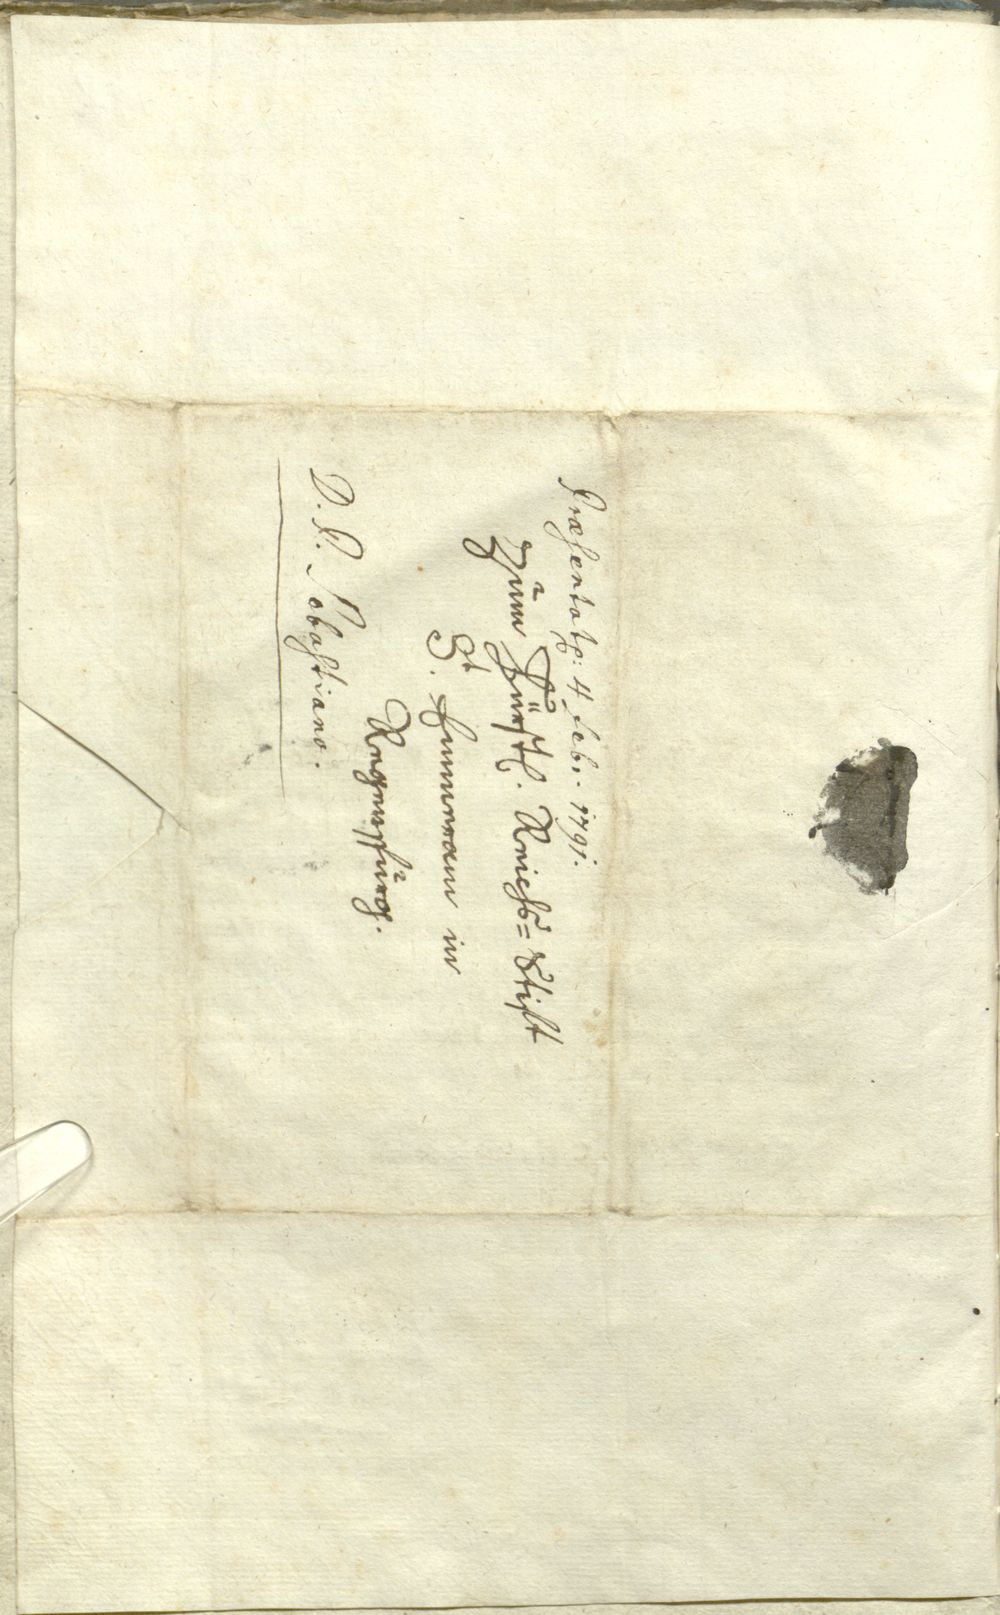 Præsentat: 4 Febr. 1791.
Zum Fürstl. Reichs=Stift
St. Emmeram in
Regenspurg.
D. P. Sebastiano.